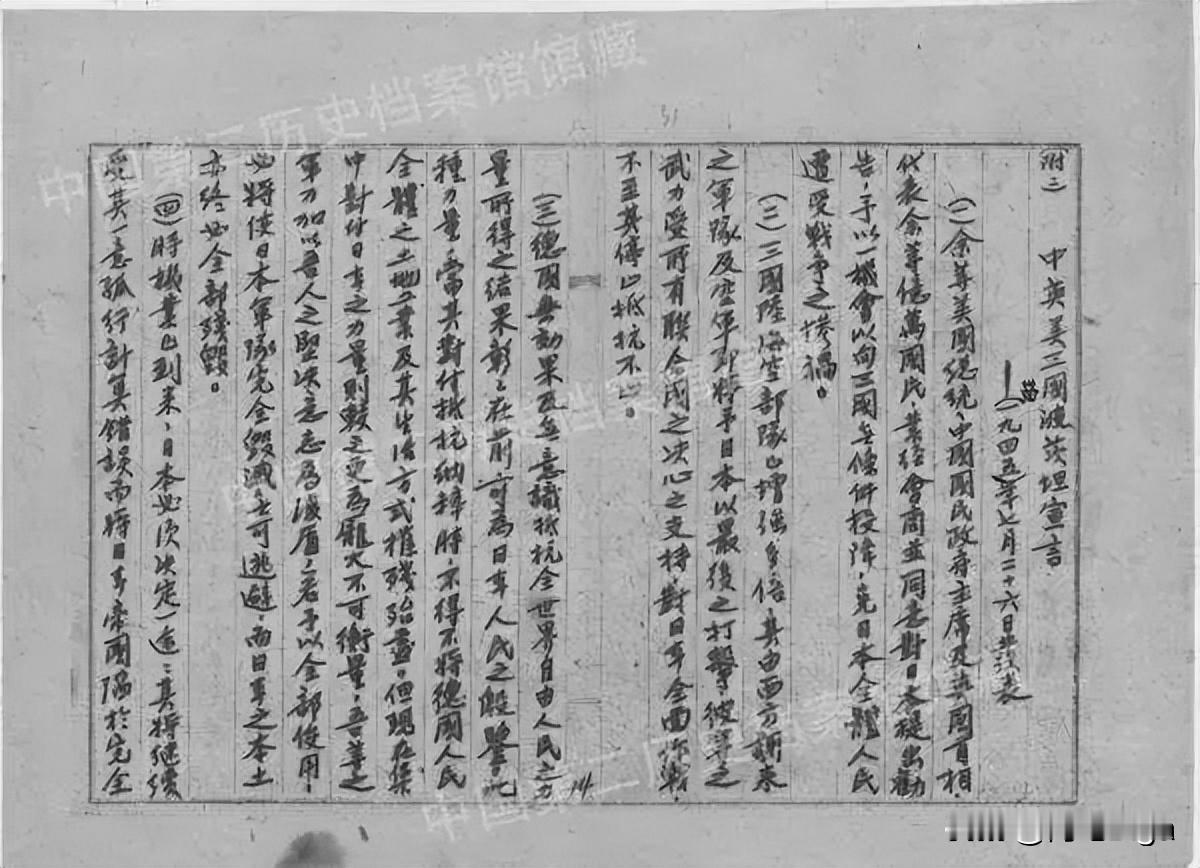 附三　中英美三國波茨坦宣言
——(一九四五年七月二十六日
(一)余等美國總統、中國國民政府主席及英國首相、
代表余等億萬國民、業經會商並同意對日本提出勸
告、予以一機會以向三國無條件投降、免日本全體人民
遭受戰爭之慘禍。
(二)三國陸海空部隊已增強多倍、其由西方新來
之軍隊及空軍即將予日本以最後之打擊、彼等之
武力受所有聯合國之決心之支持、對日本全面作戰、
不至其停止抵抗不止。
(三)德國無効果及無意識抵抗全世界自由人民之力
量所得之結果彰彰在前、可為日本人民之殷鑒、此
種力量、當其對付抵抗納粹時、不得不將德國人民
全體之土地工業及其生活方式摧殘殆盡。但現在集
中對付日本之力量則較之更為龐大不可衡量。吾等之
軍力加以吾人之堅決意志為後盾、若予以全部使用、
必將使日本軍隊完全毀滅無可逃避、而日本之本土
亦終必全部殘毀。
(四)時機業已到來、日本必須決定一途：其將繼續
受其一意孤行計算錯誤而將日本帝國陷於完全
31
14
中国第二历史档案馆馆藏